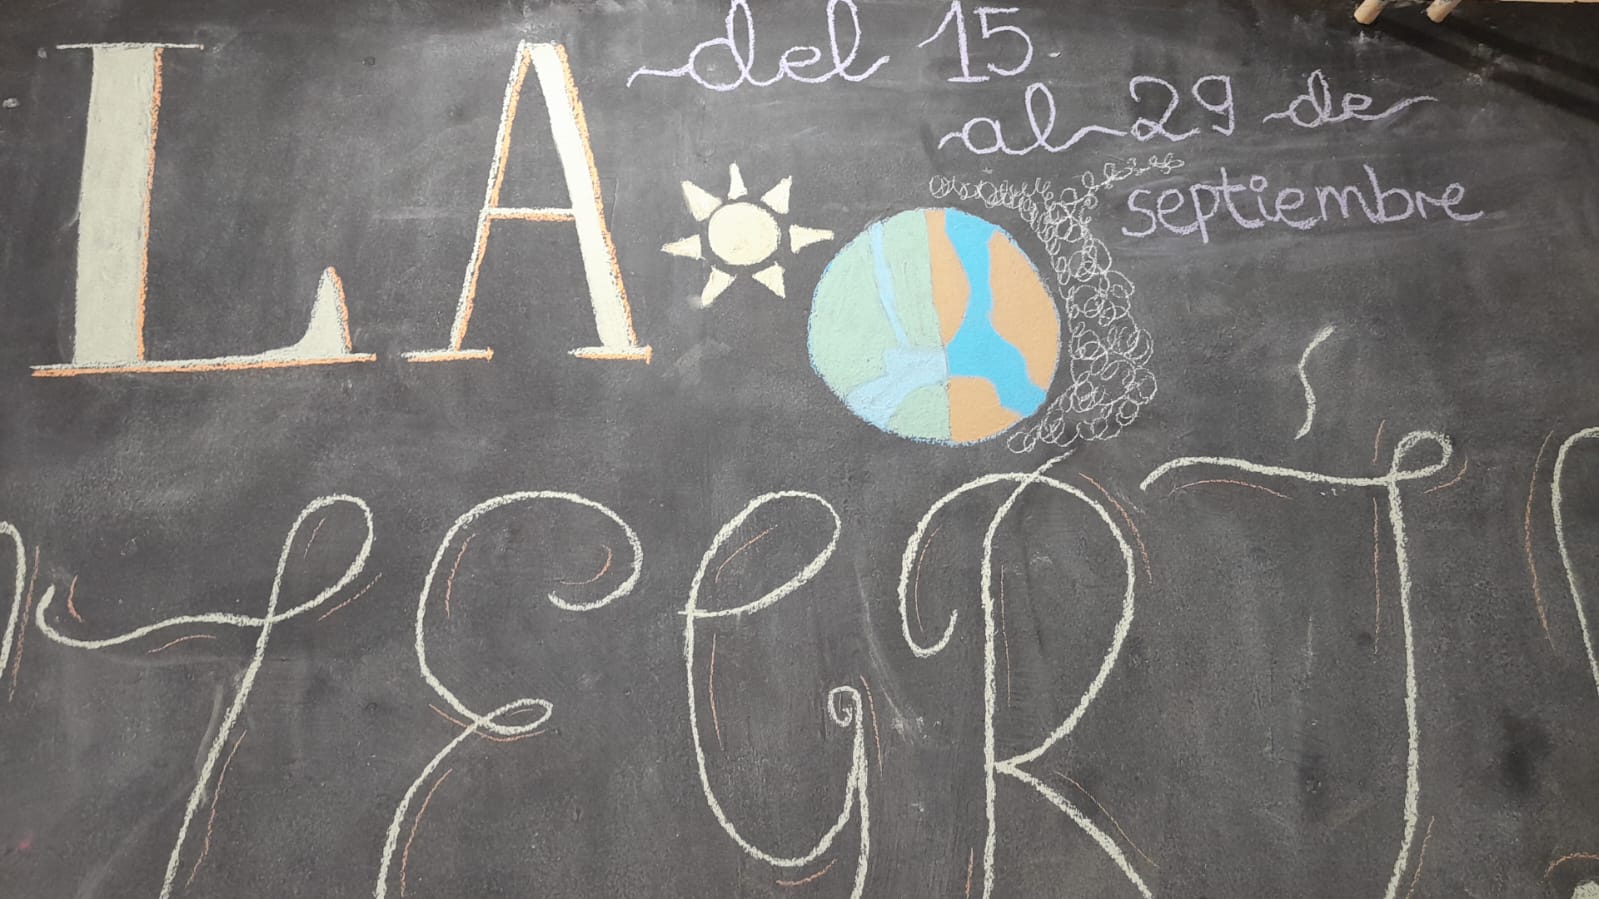 LA del 15
al 29 de
septiembre
LEGRÍ